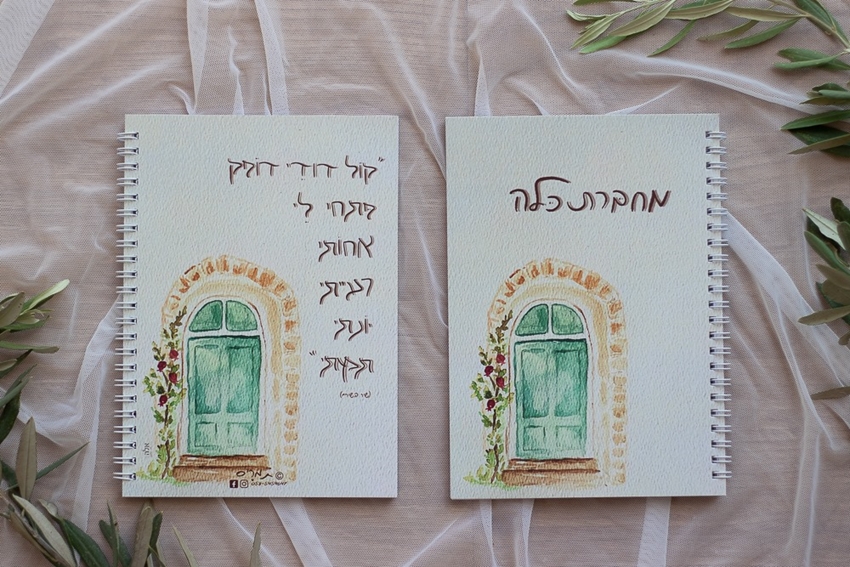 "קול דודי דופק
פתחי לי
אחותי
רעייתי
יונתי
תמתי"
(שיר השירים)
© תמר'ס
מחברת כלה